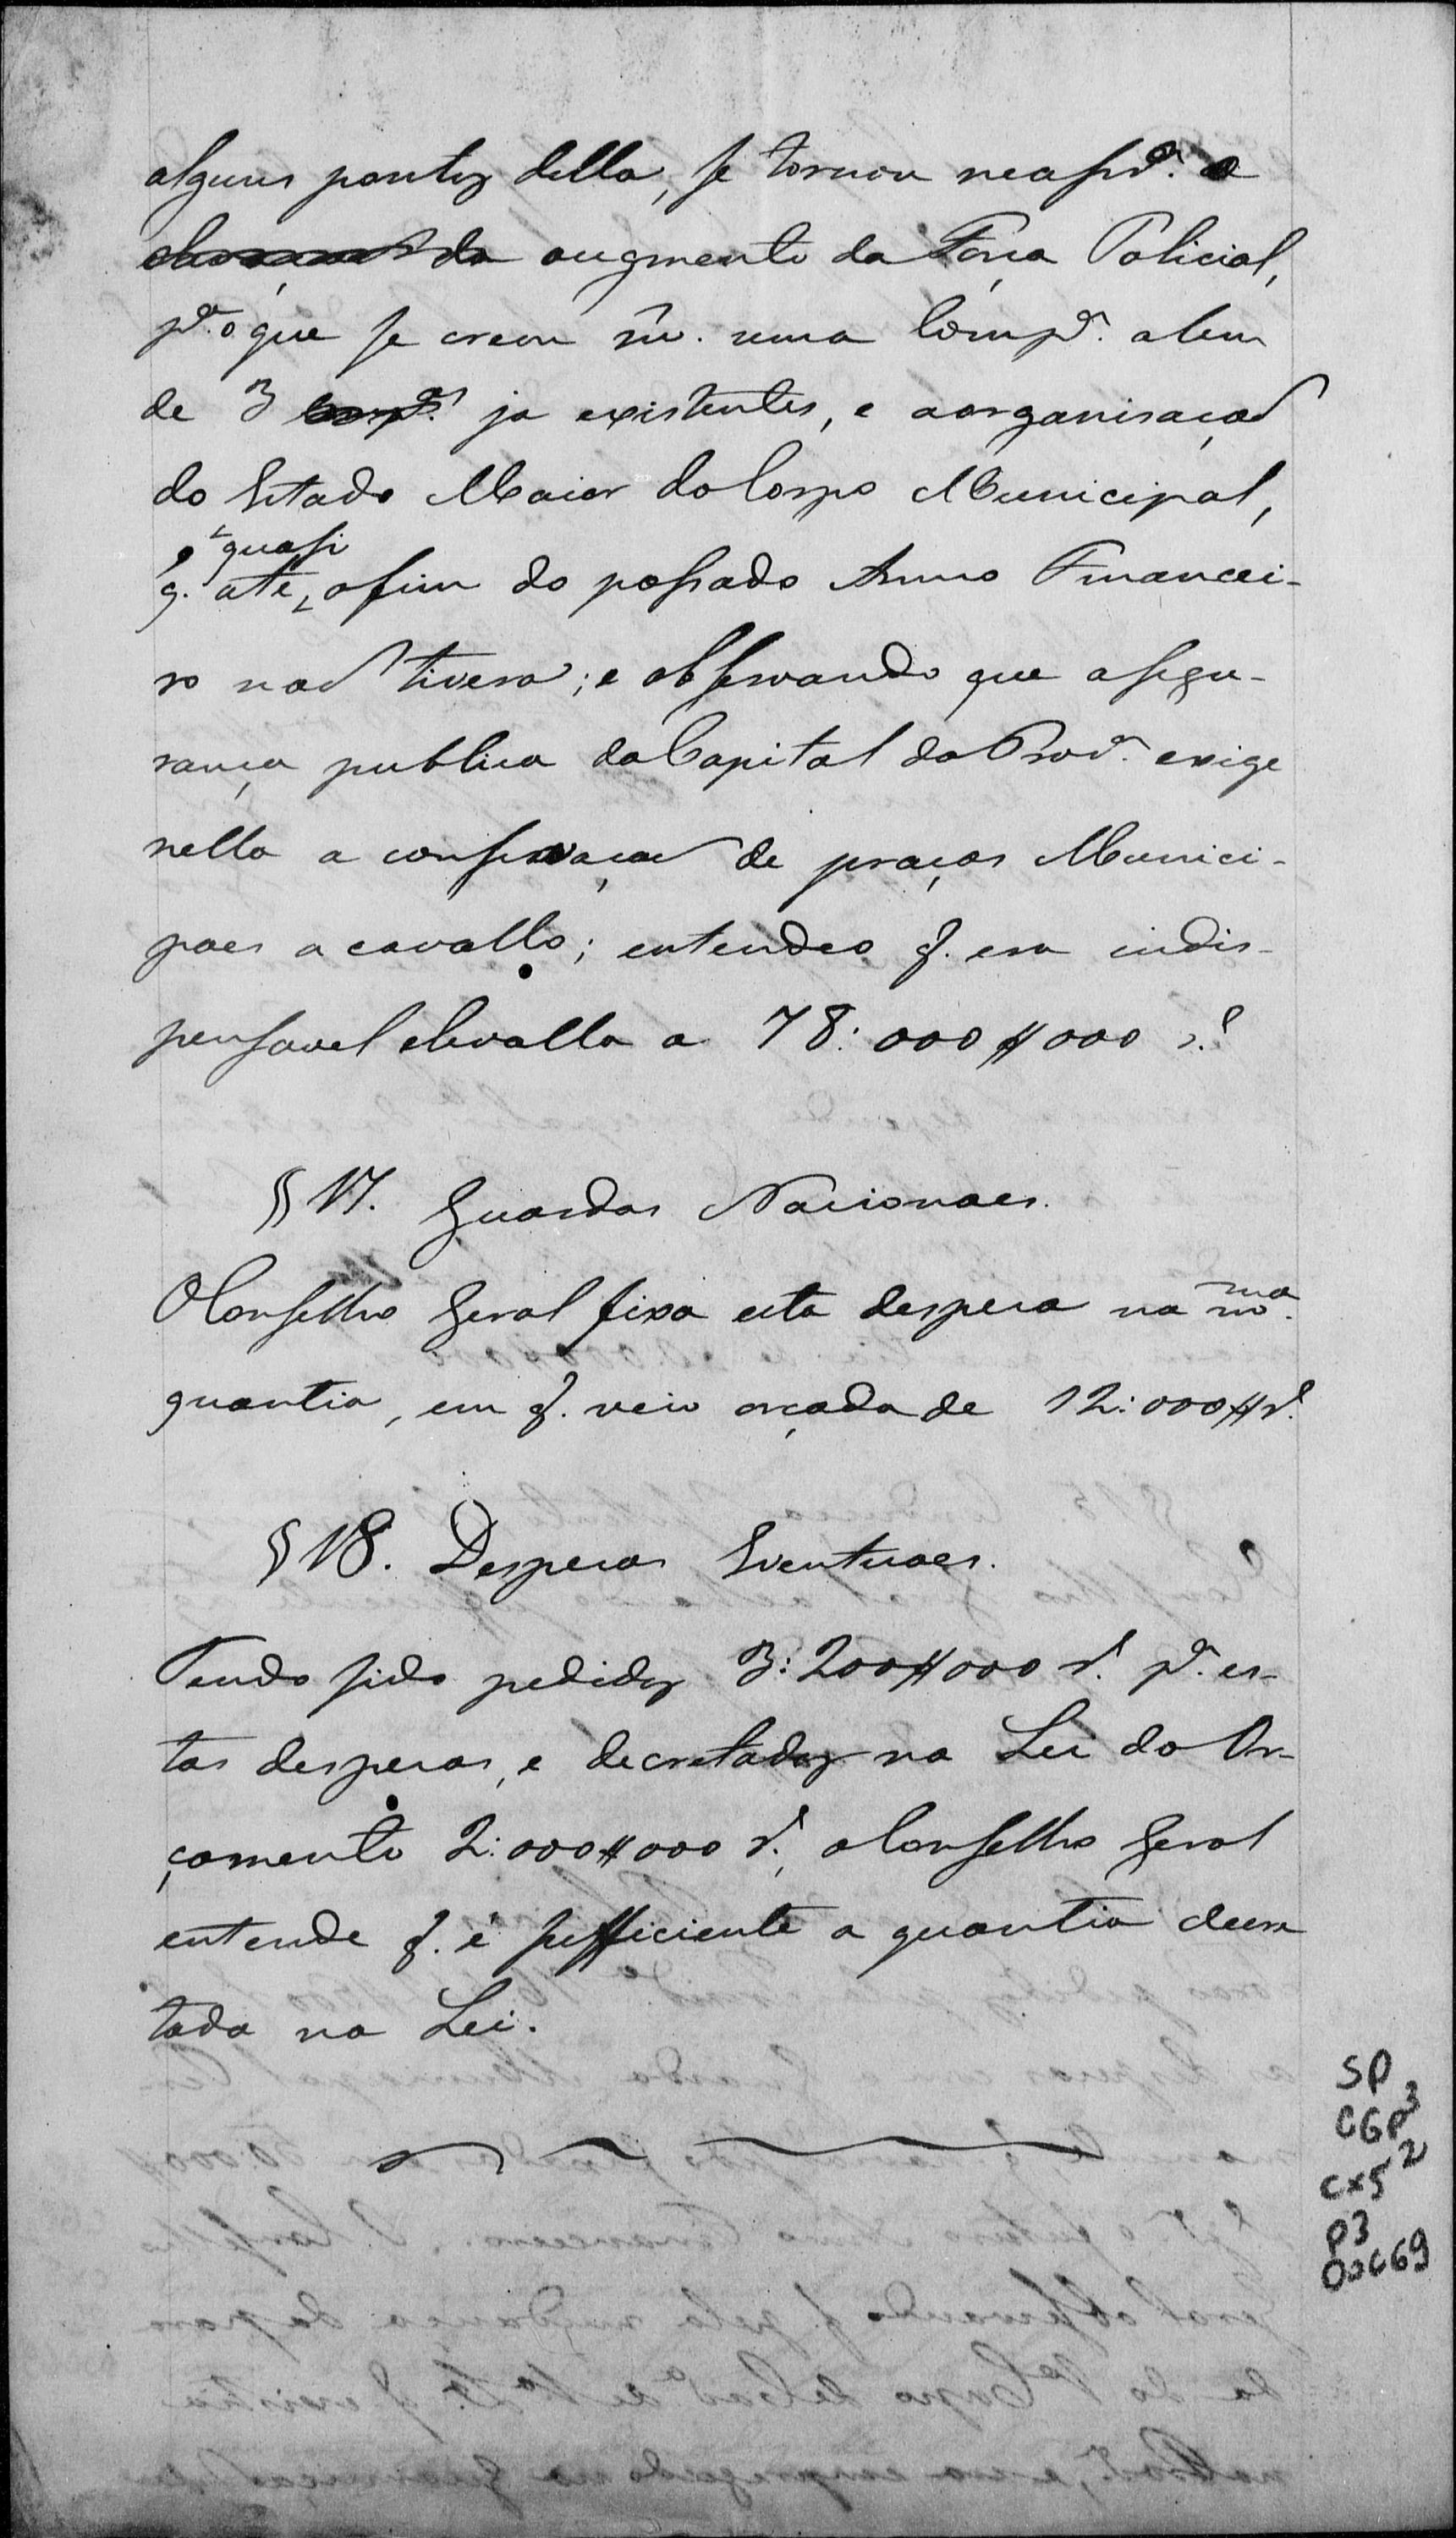 alguns pontos della, se tornou necessr.º o
da augmento da Força Policial,
p.ª o que se creou m. uma Comp.ª alem
de 3 Comp.as ja existentes, e a organisação
do Estado Maior do Corpo Municipal,
quasi
q. até o fim do passado Anno Financei-
ro não tivera; e observando que a segu-
rança publica da Capital da Prov.ª exige
nella a conservação de praças Munici-
paes a cavallo; entendeo q. era indis-
pensavel elevalla a 78:000$000 r.s
§ 17. Guardas Nacionaes.
O Conselho Geral fixa esta despeza na m.ma
quantia, em q. veio orçada de 12:000$ r.s
§ 18. Despezas Eventuaes.
Tendo sido pedidos 3:200$000 r.s p.ª es-
tas despezas, e decretados na Lei do Or-
çamento 2:000$000 r.s, o Conselho Geral
entende q. é sufficiente a quantia decre
tada na Lei.
SP
CGP3
cx5 2
P3
00669